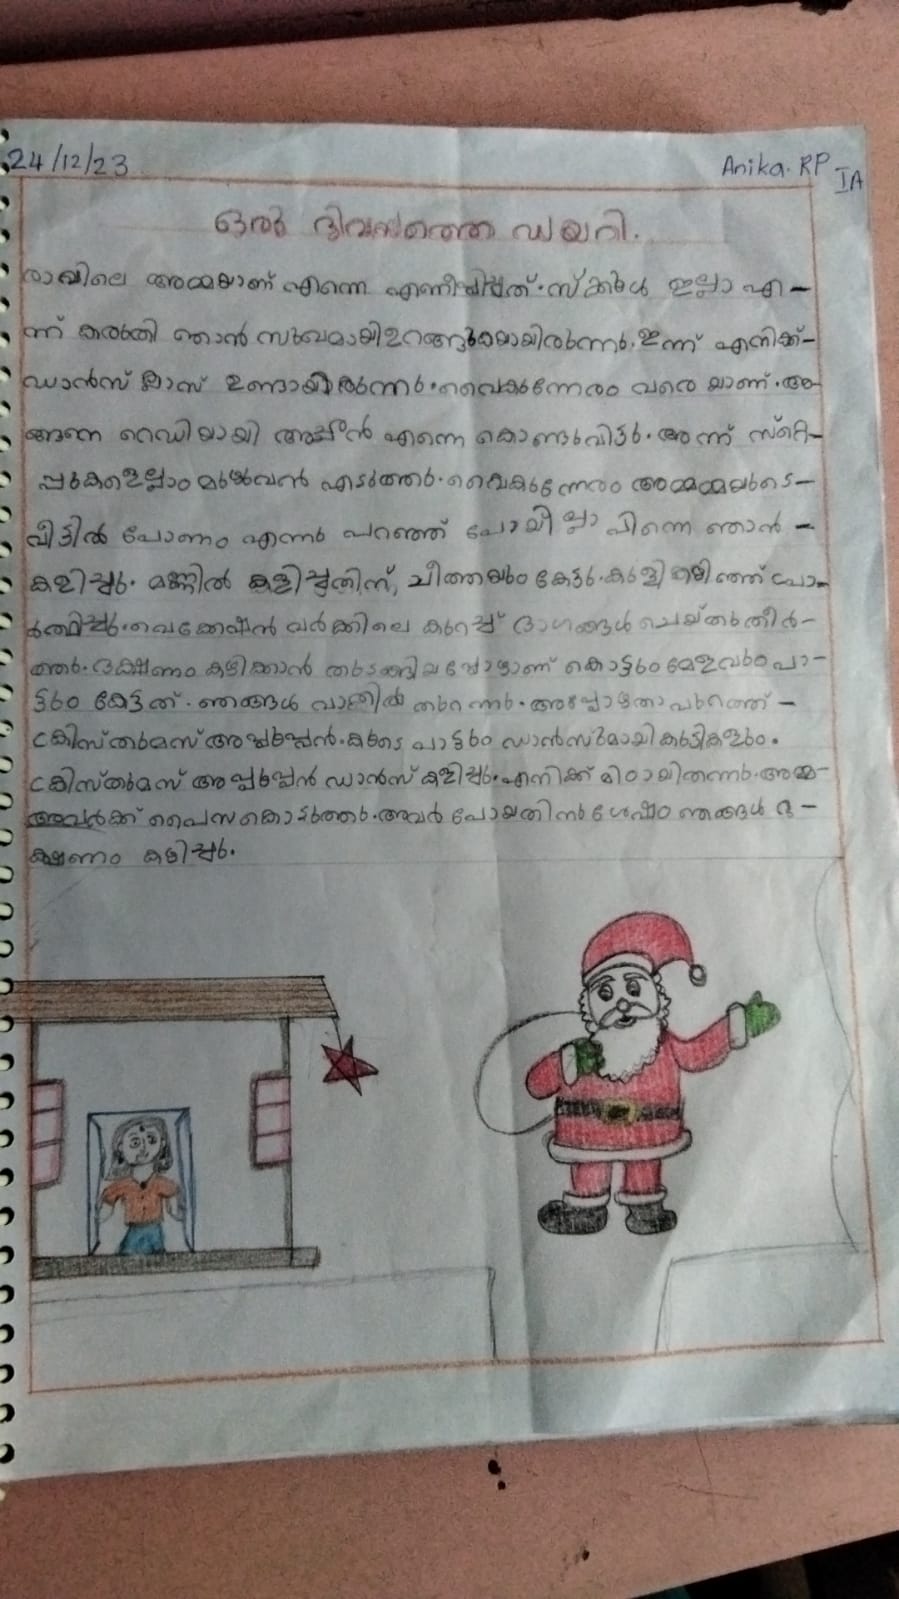 24/12/23
Anika. RP
IA
ഒരു ദിവസത്തെ ഡയറി.
രാവിലെ അമ്മയാണ് എന്നെ എണീപ്പിച്ചത്. സ്കൂൾ ഇല്ലാ എ-
ന്ന് കരുതി ഞാൻ സുഖമായി ഉറങ്ങുകയായിരുന്നു. ഇന്ന് എനിക്ക്-
ഡാൻസ് ക്ലാസ് ഉണ്ടായിരുന്നു. വൈകുന്നേരം വരെ യാണ്. അ-
ങ്ങനെ റെഡിയായി അച്ഛൻ എന്നെ കൊണ്ടുവിട്ടു. അന്ന് സ്റ്റെ-
പ്പുകളെല്ലാം മുഴുവൻ എടുത്തു. വൈകുന്നേരം അമ്മമ്മയുടെ-
വീട്ടിൽ പോണം എന്നു പറഞ്ഞ് പോയില്ലാ പിന്നെ ഞാൻ -
കളിച്ചു. മണ്ണിൽ കളിച്ചതിന്, ചീത്തയും കേട്ടു. കുളി കഴിഞ്ഞ് പ്രാ-
ർത്ഥിച്ചു. വെക്കേഷൻ വർക്കിലെ കുറച്ച് ഭാഗങ്ങൾ ചെയ്തു തീർ-
ത്തു. ഭക്ഷണം കഴിക്കാൻ തുടങ്ങിയപ്പോഴാണ് കൊട്ടും മേളവും പാ-
ട്ടും കേട്ടത്. ഞങ്ങൾ വാതിൽ തുറന്നു. അപ്പോഴതാ പുറത്ത് -
ക്രിസ്തുമസ് അപ്പൂപ്പൻ. കൂടെ പാട്ടും ഡാൻസുമായി കുട്ടികളും.
ക്രിസ്തുമസ് അപ്പൂപ്പൻ ഡാൻസ് കളിച്ചു. എനിക്ക് മിഠായി തന്നു. അമ്മ-
അവർക്ക് പൈസ കൊടുത്തു. അവർ പോയതിനു ശേഷം ഞങ്ങൾ ഭ-
ക്ഷണം കഴിച്ചു.